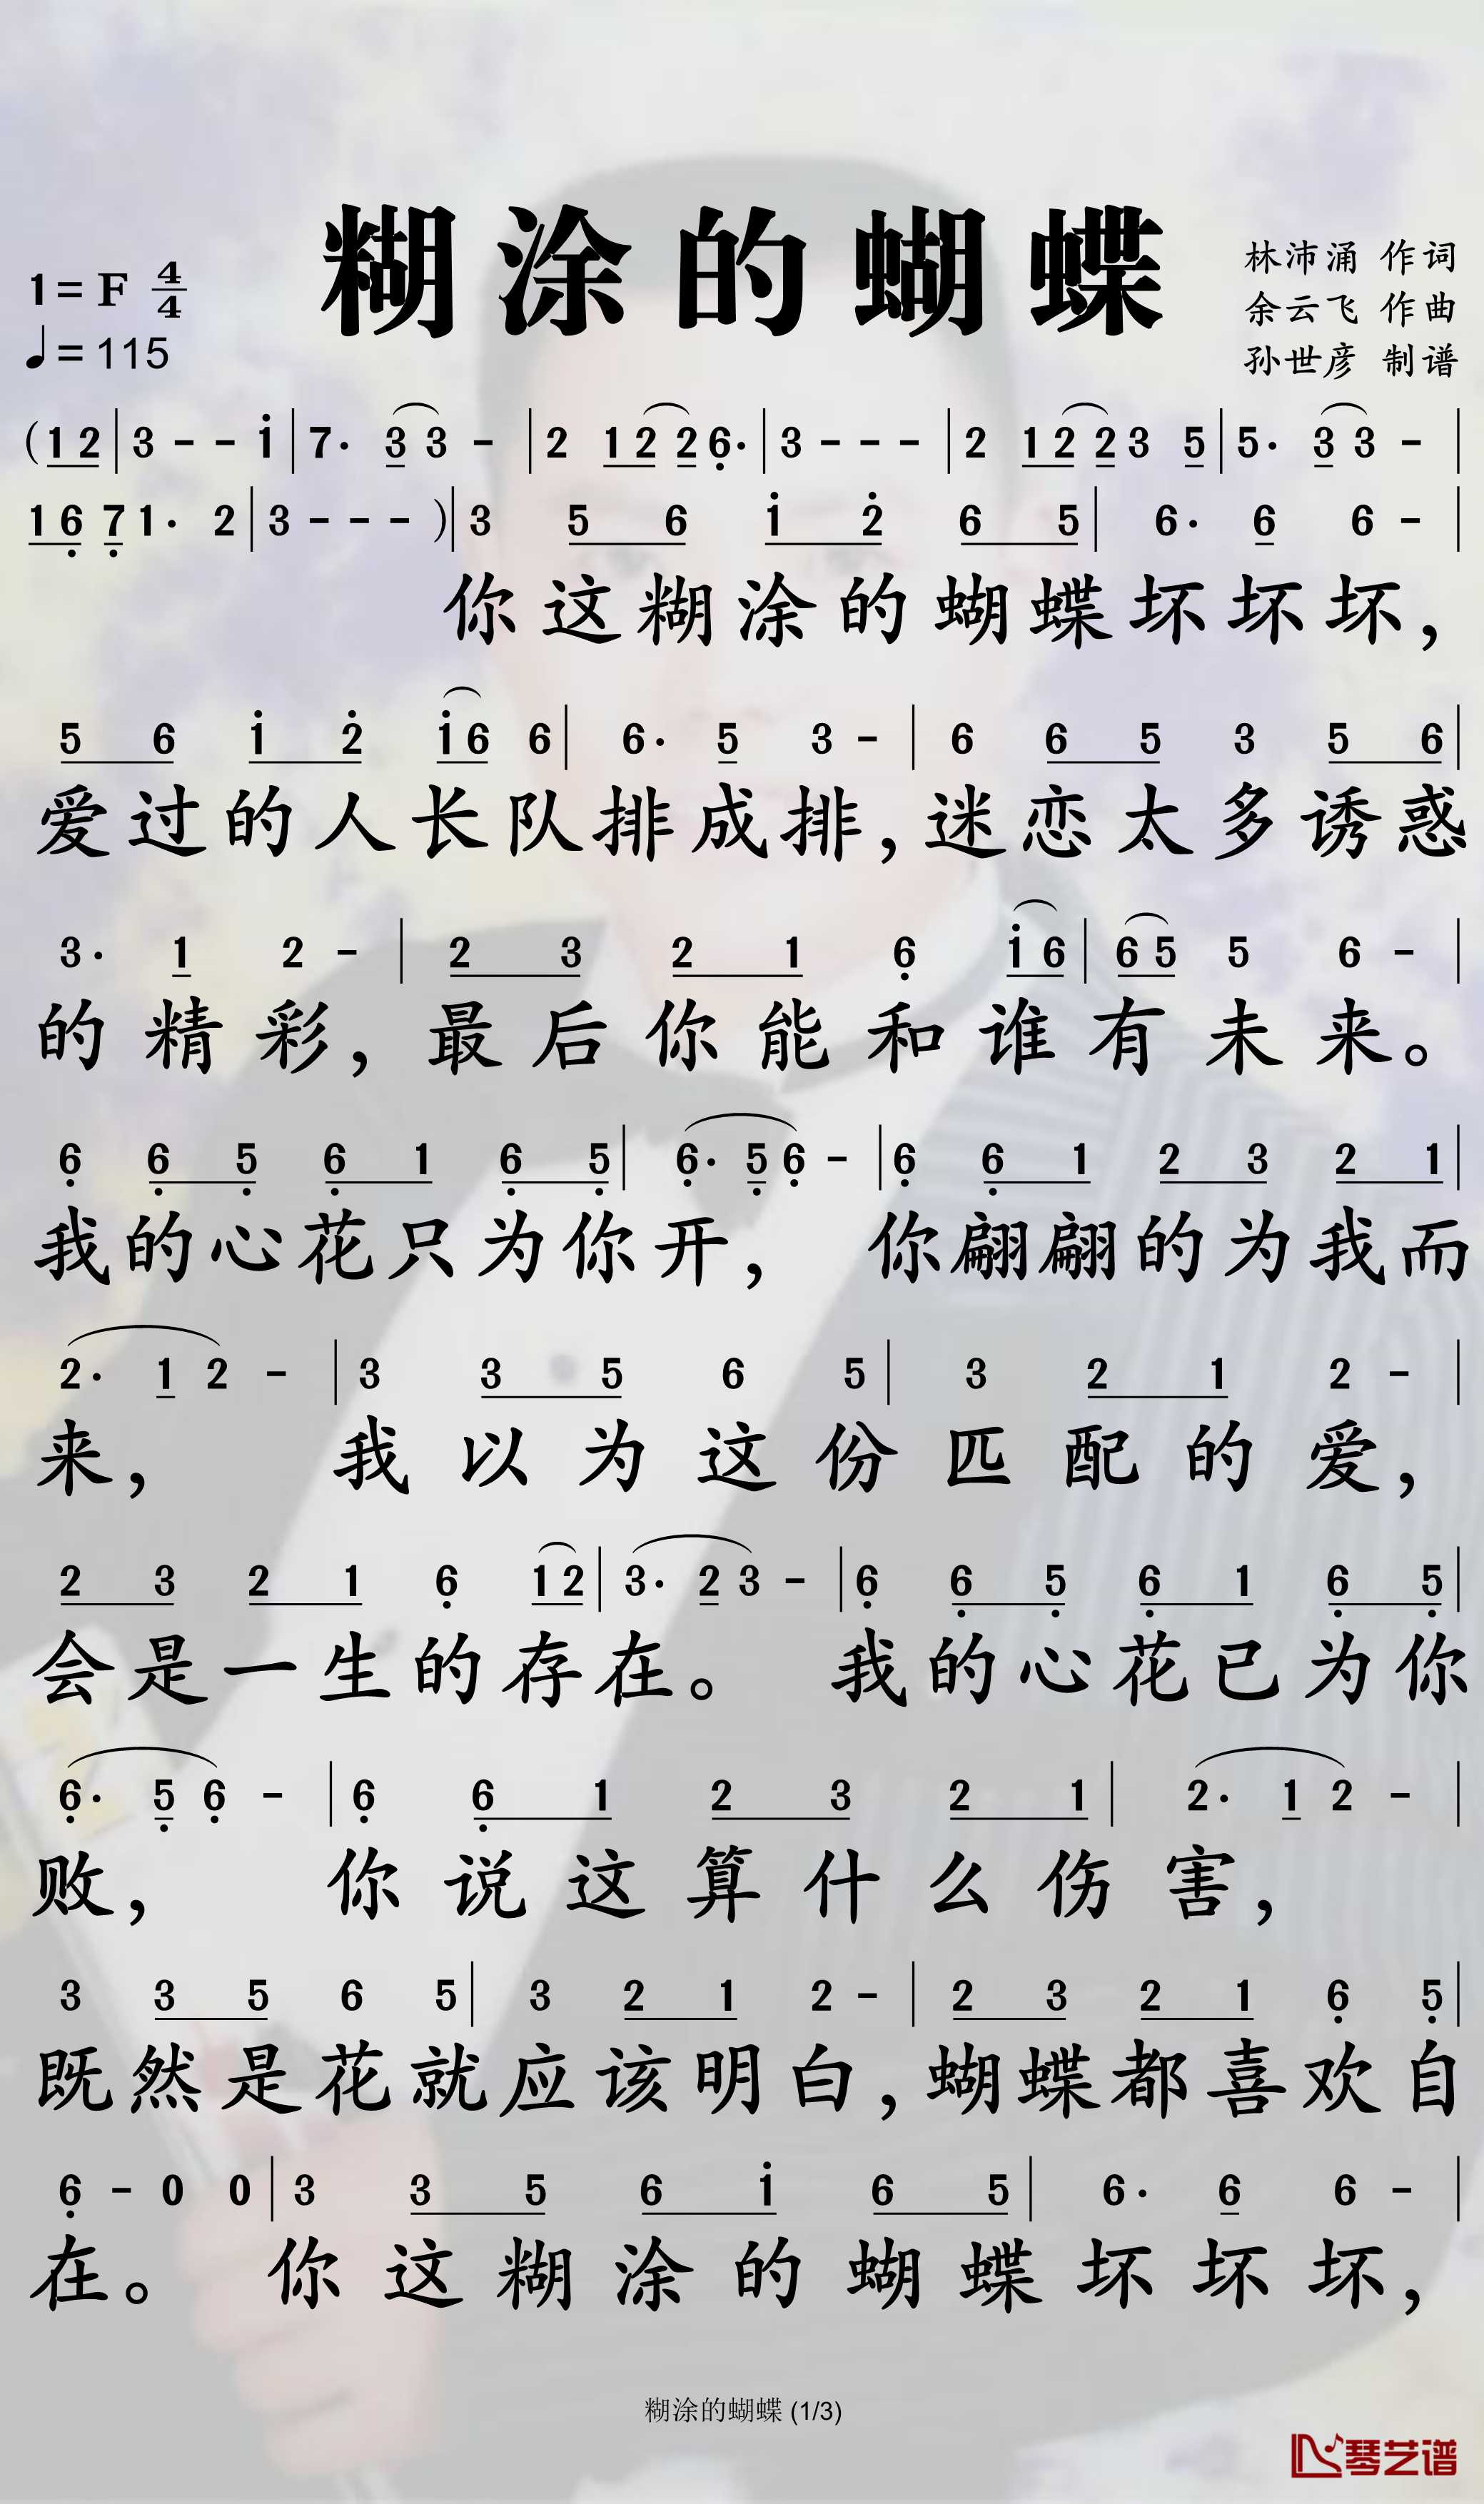 糊涂的蝴蝶
1=F 4/4
♩=115
林沛涌 作词
余云飞 作曲
孙世彦 制谱
(1 2 | 3 - - i | 7· 3 3 - | 2 1 2 2 6̣· | 3 - - - | 2 1 2 2 3 5 | 5· 3 3 - |
1 6̣ 7̣ 1· 2 | 3 - - - )| 3 5 6 i 2̇ 6 5 | 6· 6 6 - |
你这糊涂的蝴蝶坏坏坏，
5 6 i 2̇ i 6 6 | 6· 5 3 - | 6 6 5 3 5 6 |
爱过的人长队排成排，迷恋太多诱惑
3· 1 2 - | 2 3 2 1 6̣ i 6 | 6 5 5 6 - |
的精彩，最后你能和谁有未来。
6̣ 6̣ 5̣ 6̣ 1 6̣ 5̣ | 6̣· 5̣ 6̣ - | 6̣ 6̣ 1 2 3 2 1 |
我的心花只为你开，你翩翩的为我而
2· 1 2 - | 3 3 5 6 5 | 3 2 1 2 - |
来，我以为这份匹配的爱，
2 3 2 1 6̣ 1 2 | 3· 2 3 - | 6̣ 6̣ 5̣ 6̣ 1 6̣ 5̣ |
会是一生的存在。我的心花已为你
6̣· 5̣ 6̣ - | 6̣ 6̣ 1 2 3 2 1 | 2· 1 2 - |
败，你说这算什么伤害，
3 3 5 6 5 | 3 2 1 2 - | 2 3 2 1 6̣ 5̣ |
既然是花就应该明白，蝴蝶都喜欢自
6̣ - 0 0 | 3 3 5 6 i 6 5 | 6· 6 6 - |
在。你这糊涂的蝴蝶坏坏坏，
糊涂的蝴蝶 (1/3)
琴艺谱